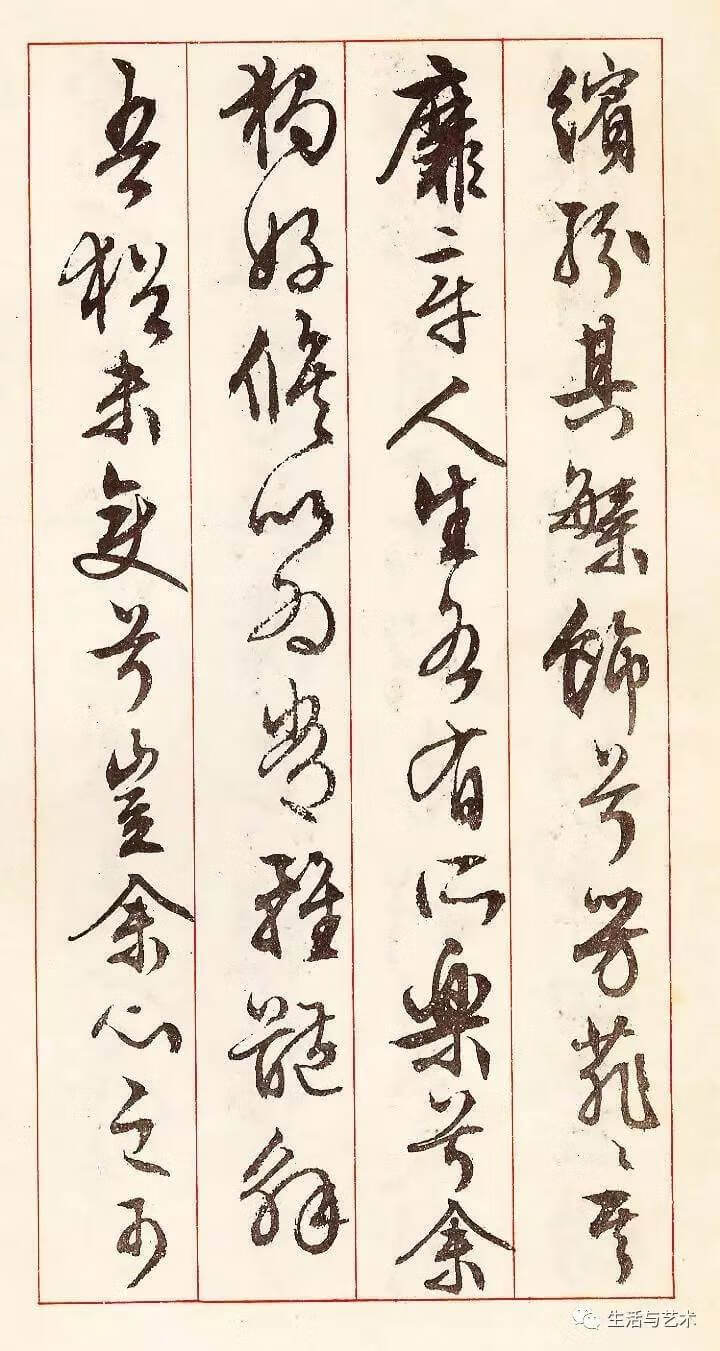 繽紛其繁飾兮芳菲〻其
靡章人生各有所樂兮余
獨好脩以為常雖體解
吾猶未變兮豈余心之可
生活与艺术